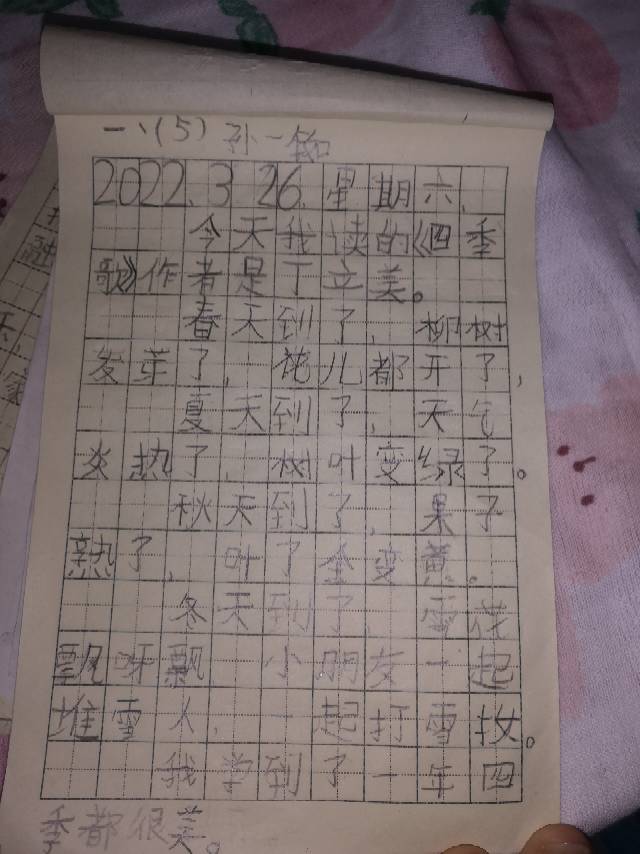 一、(5) 孙一
2022.3 26.星期六.
今天我读的《四季
歌》作者是丁立美。
春天到了,柳树
发芽了,花儿都开了,
夏天到了,天气
炎热了,树叶变绿了。
秋天到了,果子
熟了,叶了全变黄。
冬天到了,雪花
飘呀飘 小朋友一起
堆雪人,一起打雪
我学到了一年四
季都很美。